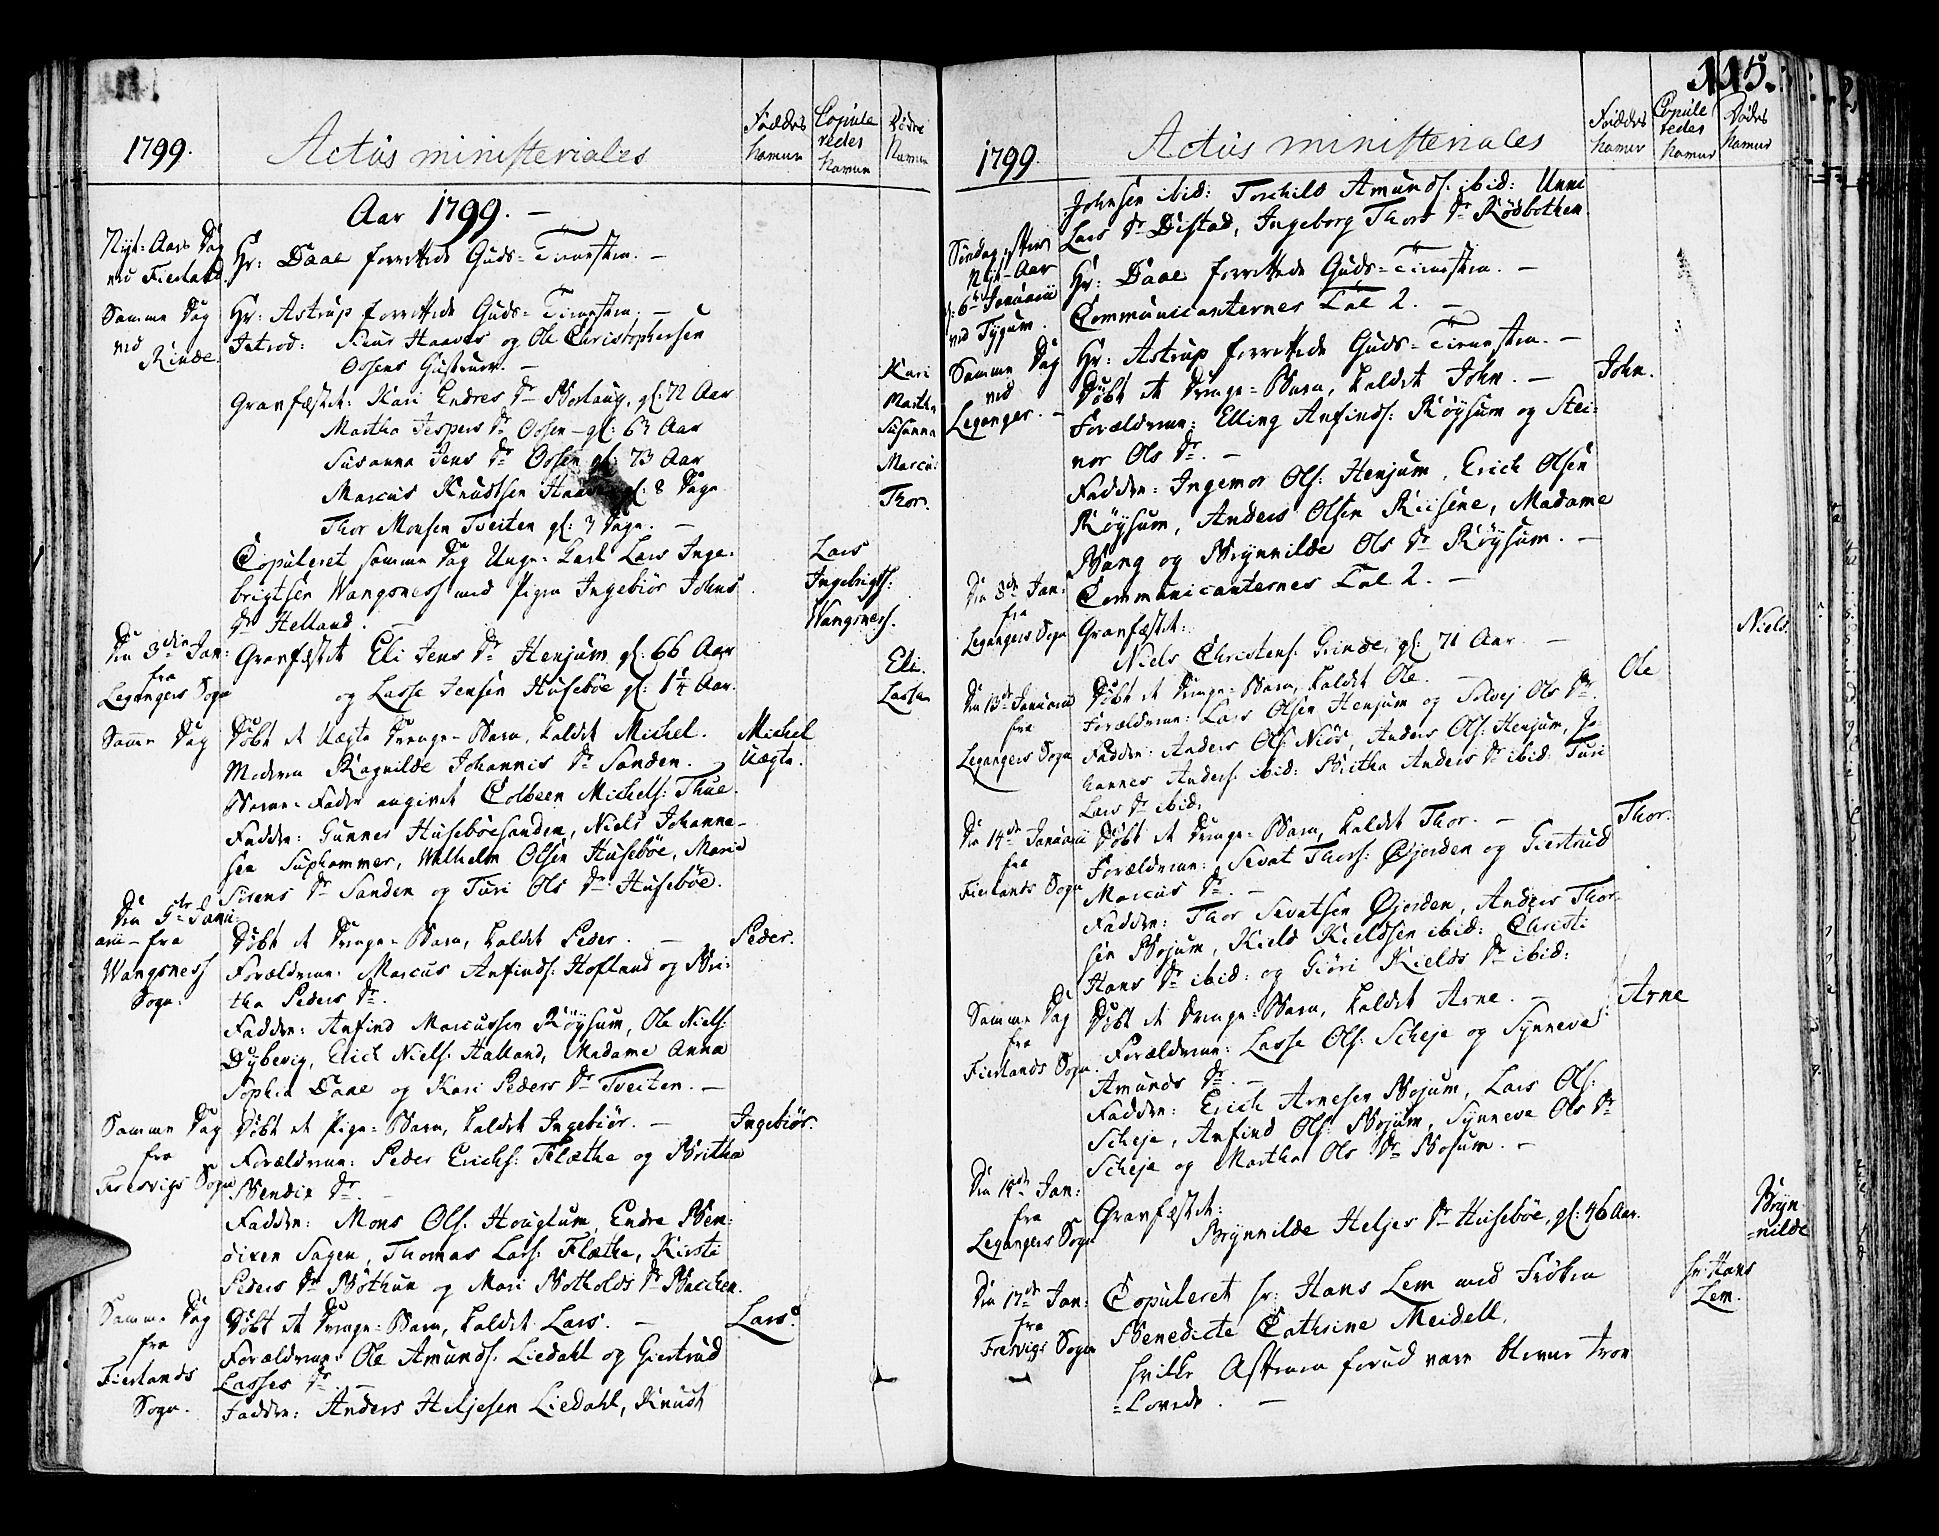 1799.
Actus ministeriales
Føddes Navne
Copule
redes
Navne
Dödes
Navne
Aar 1799. –
Nyt-Aars Dag
ved Fierland.
Hr: Daae forrettede Guds-Tienesten. –
Samme Dag
ved
Rinde.
Hr: Astrup forrettede Guds-Tienesten. –
Introd: Siur Haaves og Ole Christophersen
Ossens Hustruer. –
Gravfæstet: Kari Endres Dr Borlaug, gl: 72 Aar
Kari
Martha Jespers Dr Ossen – gl: 63 Aar
Martha
Susanna Jens Dr Ossen gl: 73 Aar
Susanna
Marcus Knudsen gl: 8 Dage
Marcus:
Thor Monsen Tveiten gl: 7 Dage. –
Thor.
Copuleret samme Dag Unge-Karl Lars Inge-
Lars
brigtsen Wangsness med Pigen Ingebiør Johns
Ingebrigts:
Dr Helland. –
Wangness.
Den 3die Jan:
fra
Legangers Sogn
Gravfæstet Eli Jens Dr Henjum gl: 66 Aar
Eli.
og Lasse Jensen Husebøe gl: 1¼ Aar.
Lasse
Samme Dag
Døbt et Uægte Drenge-Barn, kaldet Michel.
Michel
Moderen Ragnilde Johannis Dr Sanden.
Uægte.
Barne-Fader angivet Colbeen Michels: Thue.
Faddere: Gunner Husebøesanden, Niels Johanne-
sen Suphammer, Wilhelm Olsen Husebøe, Marie
Sirens Dr Sanden og Turi Ols Dr Husebøe.
Den 5te Janu
arii – fra
Wangsness
Sogn:
Døbt et Drenge-Barn, kaldet Peder. –
Peder.
Forældrene: Marcus Anfinds: Hofland og Bri-
tha Peders Dr.
Faddere: Anfind Marcussen Røysum, Ole Niels:
Dybevig, Erich Niels: Halland, Madame Anna
Sophia Daae og Kari Peders Dr Tveiten. –
Samme Dag
fra
Fresvigs Sogn
Døbt et Pige-Barn, kaldet Ingebiør. –
Ingebiør.
Forældrene: Peder Erichs: Flæthe og Britha
Bendix Dr. –
Faddere: Mons Ols: Hougtum, Endre Ben-
dixen Sagen, Thomas Lars: Flæthe, Kirsti
Peders Dr Bøthun og Mari Botholds Dr Brechen.
Samme Dag
fra
Fierlands
Sogn.
Døbt et Drenge-Barn, kaldet Lars. –
Lars.
Forældrene: Ole Amunds: Liedahl og Giertrud
Lasses Dr –
Faddere: Anders Heljesen Liedahl, Knud
115.
1799.
Actus ministeriales
Føddes
Navne
Copule
redes
Navne
Dødes
Navne
Johnsen ibid: Torchild Amunds: ibid: Unni
Lars Dr Distad, Ingeborg Thors Dr Rødbotten.
Nyt-Aar
d: 6te Januarii
ved Tygum.
Hr: Daae forrettede Guds-Tienesten. –
Communicanternes Tal 2. –
Samme Dag
ved
Leganger. –
Hr: Astrup forrettede Guds-Tienesten. –
Døbt et Drenge-Barn, kaldet John. –
John.
Forældrene: Elling Anfinds: Røysum og Stei-
nor Ols Dr. –
Faddere: Ingemor Ols: Henjum, Erich Olsen
Røysum, Anders Olsen Riisene, Madame
Bang og Brynnilde Ols Dr Røysum. –
Communicanternes Tal 2. –
Den 8de Jan:
fra
Legangers Sogn
Gravfæstet:
Niels Christens: Grinde, gl: 71 Aar –
Niels.
Den 13de Januarii
fra
Legangers Sogn
Døbt et Drenge-Barn, kaldet Ole. –
Ole
Forældrene: Lars Olsen Henjum og Solvej Ols Dr
Faddere: Anders Ols: Niøs, Anders Ols: Henjum, Jo-
hannes Anders: ibid: Britha Anders Dr ibid: Turi
Lars Dr ibid:
Den 14de Januarii
fra
Fierlands Sogn
Døbt et Drenge-Barn, kaldet Thor. –
Thor.
Forældrene: Sevat Thors: Øjorden og Giertrud
Marcus Dr. –
Faddere: Thor Sevatsen Øjorden, Anders Thor-
sen Bojum, Kield Kieldsen ibid: Christi
Hans Dr ibid: og Giøri Kields Dr ibid:
Samme Dag
fra
Fierlands Sogn.
Døbt et Drenge-Barn, kaldet Arne. –
Arne
Forældrene: Lasse Ols: Scheje og Synneve
Amunds Dr. –
Faddere: Erich Arnesen Bojum, Lars Ols:
Scheje, Anfind Ols: Bojum, Synneve Ols Dr
Scheje og Martha Ols Dr Bojum. –
Den 14de Jan:
fra
Legangers Sogn
Gravfæstet:
Brynnilde Heljes Dr Husebøe, gl: 46 Aar.
Bryn
=nilde
Den 17de Jan:
fra
Fresvigs Sogn
Copuleret Hr: Hans Lem med Frøken
Hr: Hans
Lem.
Benedicte Cathrine Meidell,
hvilke Aftenen forud vare blevne trov
=lovede. –